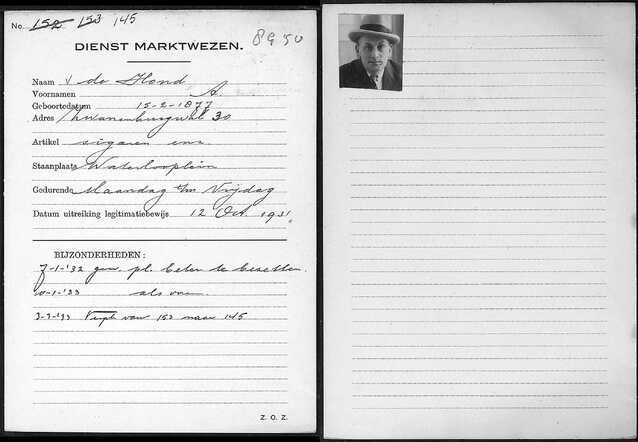 No. 152 153 145
8950
DIENST MARKTWEZEN.
Naam de Hond
Voornamen A.
Geboortedatum 15-2-1877
Adres Zwanenburgwal 30
Artikel sigaren enz.
Staanplaats Waterlooplein
Gedurende Maandag t/m Vrijdag
Datum uitreiking legitimatiebewijs 12 Oct. 1931
BIJZONDERHEDEN:
7-1-'32 gew. pl. beter te bezetten.
10-1-'33 als voren
3-3-'33 Verpl. van 153 naar 145
Z. O. Z.